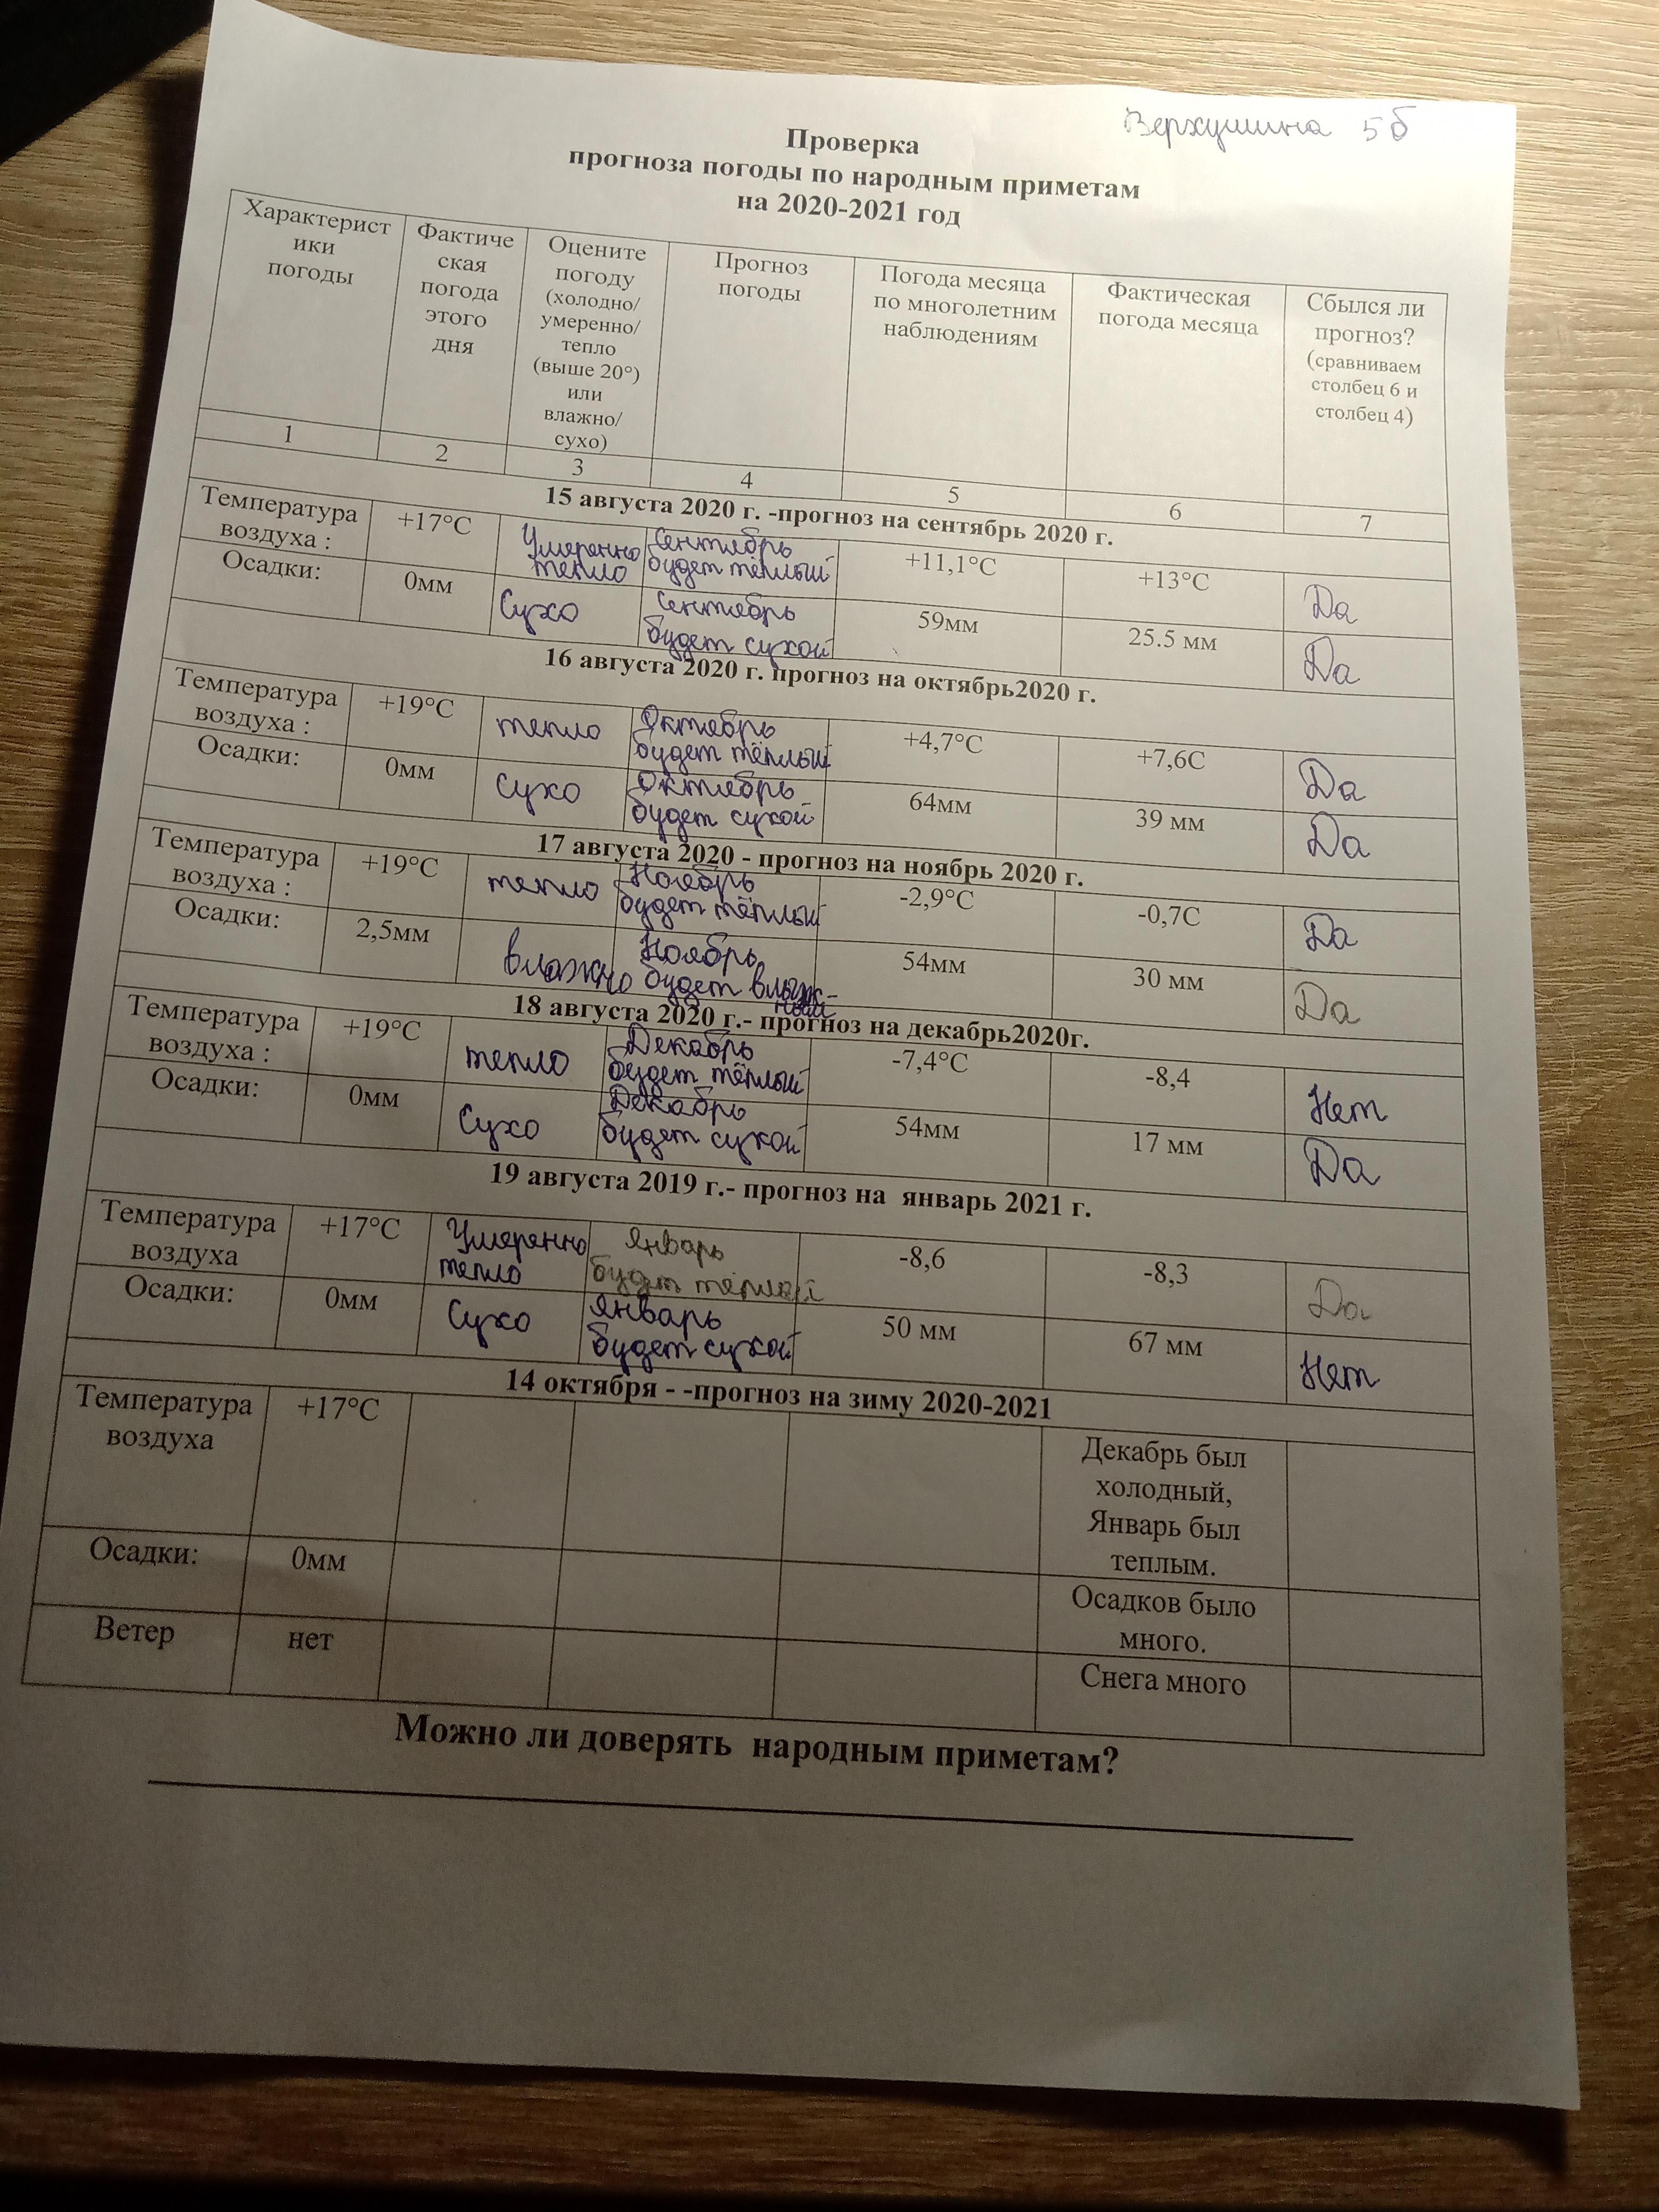 Верхушина 5б
Проверка
прогноза погоды по народным приметам
на 2020-2021 год
Характерист
ики
погоды
Фактиче
ская
погода
этого
дня
Оцените
погоду
(холодно/
умеренно/
тепло
(выше 20°)
или
влажно/
сухо)
Прогноз
погоды
Погода месяца
по многолетним
наблюдениям
Фактическая
погода месяца
Сбылся ли
прогноз?
(сравниваем
столбец 6 и
столбец 4)
1
2
3
4
5
6
7
15 августа 2020 г. -прогноз на сентябрь 2020 г.
Температура
воздуха :
+17°C
Умеренно
тепло
Сентябрь
будет тёплый
+11,1°C
+13°C
Да
Осадки:
0мм
Сухо
Сентябрь
будет сухой
59мм
25.5 мм
Да
16 августа 2020 г. прогноз на октябрь2020 г.
Температура
воздуха :
+19°C
тепло
Октябрь
будет тёплый
+4,7°C
+7,6C
Да
Осадки:
0мм
Сухо
Октябрь
будет сухой
64мм
39 мм
Да
17 августа 2020 - прогноз на ноябрь 2020 г.
Температура
воздуха :
+19°C
тепло
Ноябрь
будет тёплый
-2,9°C
-0,7C
Да
Осадки:
2,5мм
влажно
Ноябрь
будет влаж-
ный
54мм
30 мм
Да
18 августа 2020 г.- прогноз на декабрь2020г.
Температура
воздуха :
+19°C
тепло
Декабрь
будет тёплый
-7,4°C
-8,4
Нет
Осадки:
0мм
Сухо
Декабрь
будет сухой
54мм
17 мм
Да
19 августа 2019 г.- прогноз на январь 2021 г.
Температура
воздуха
+17°C
Умеренно
тепло
Январь
будет тёплый
-8,6
-8,3
Да
Осадки:
0мм
Сухо
Январь
будет сухой
50 мм
67 мм
Нет
14 октября - -прогноз на зиму 2020-2021
Температура
воздуха
+17°C
Декабрь был
холодный,
Январь был
теплым.
Осадки:
0мм
Осадков было
много.
Ветер
нет
Снега много
Можно ли доверять народным приметам?